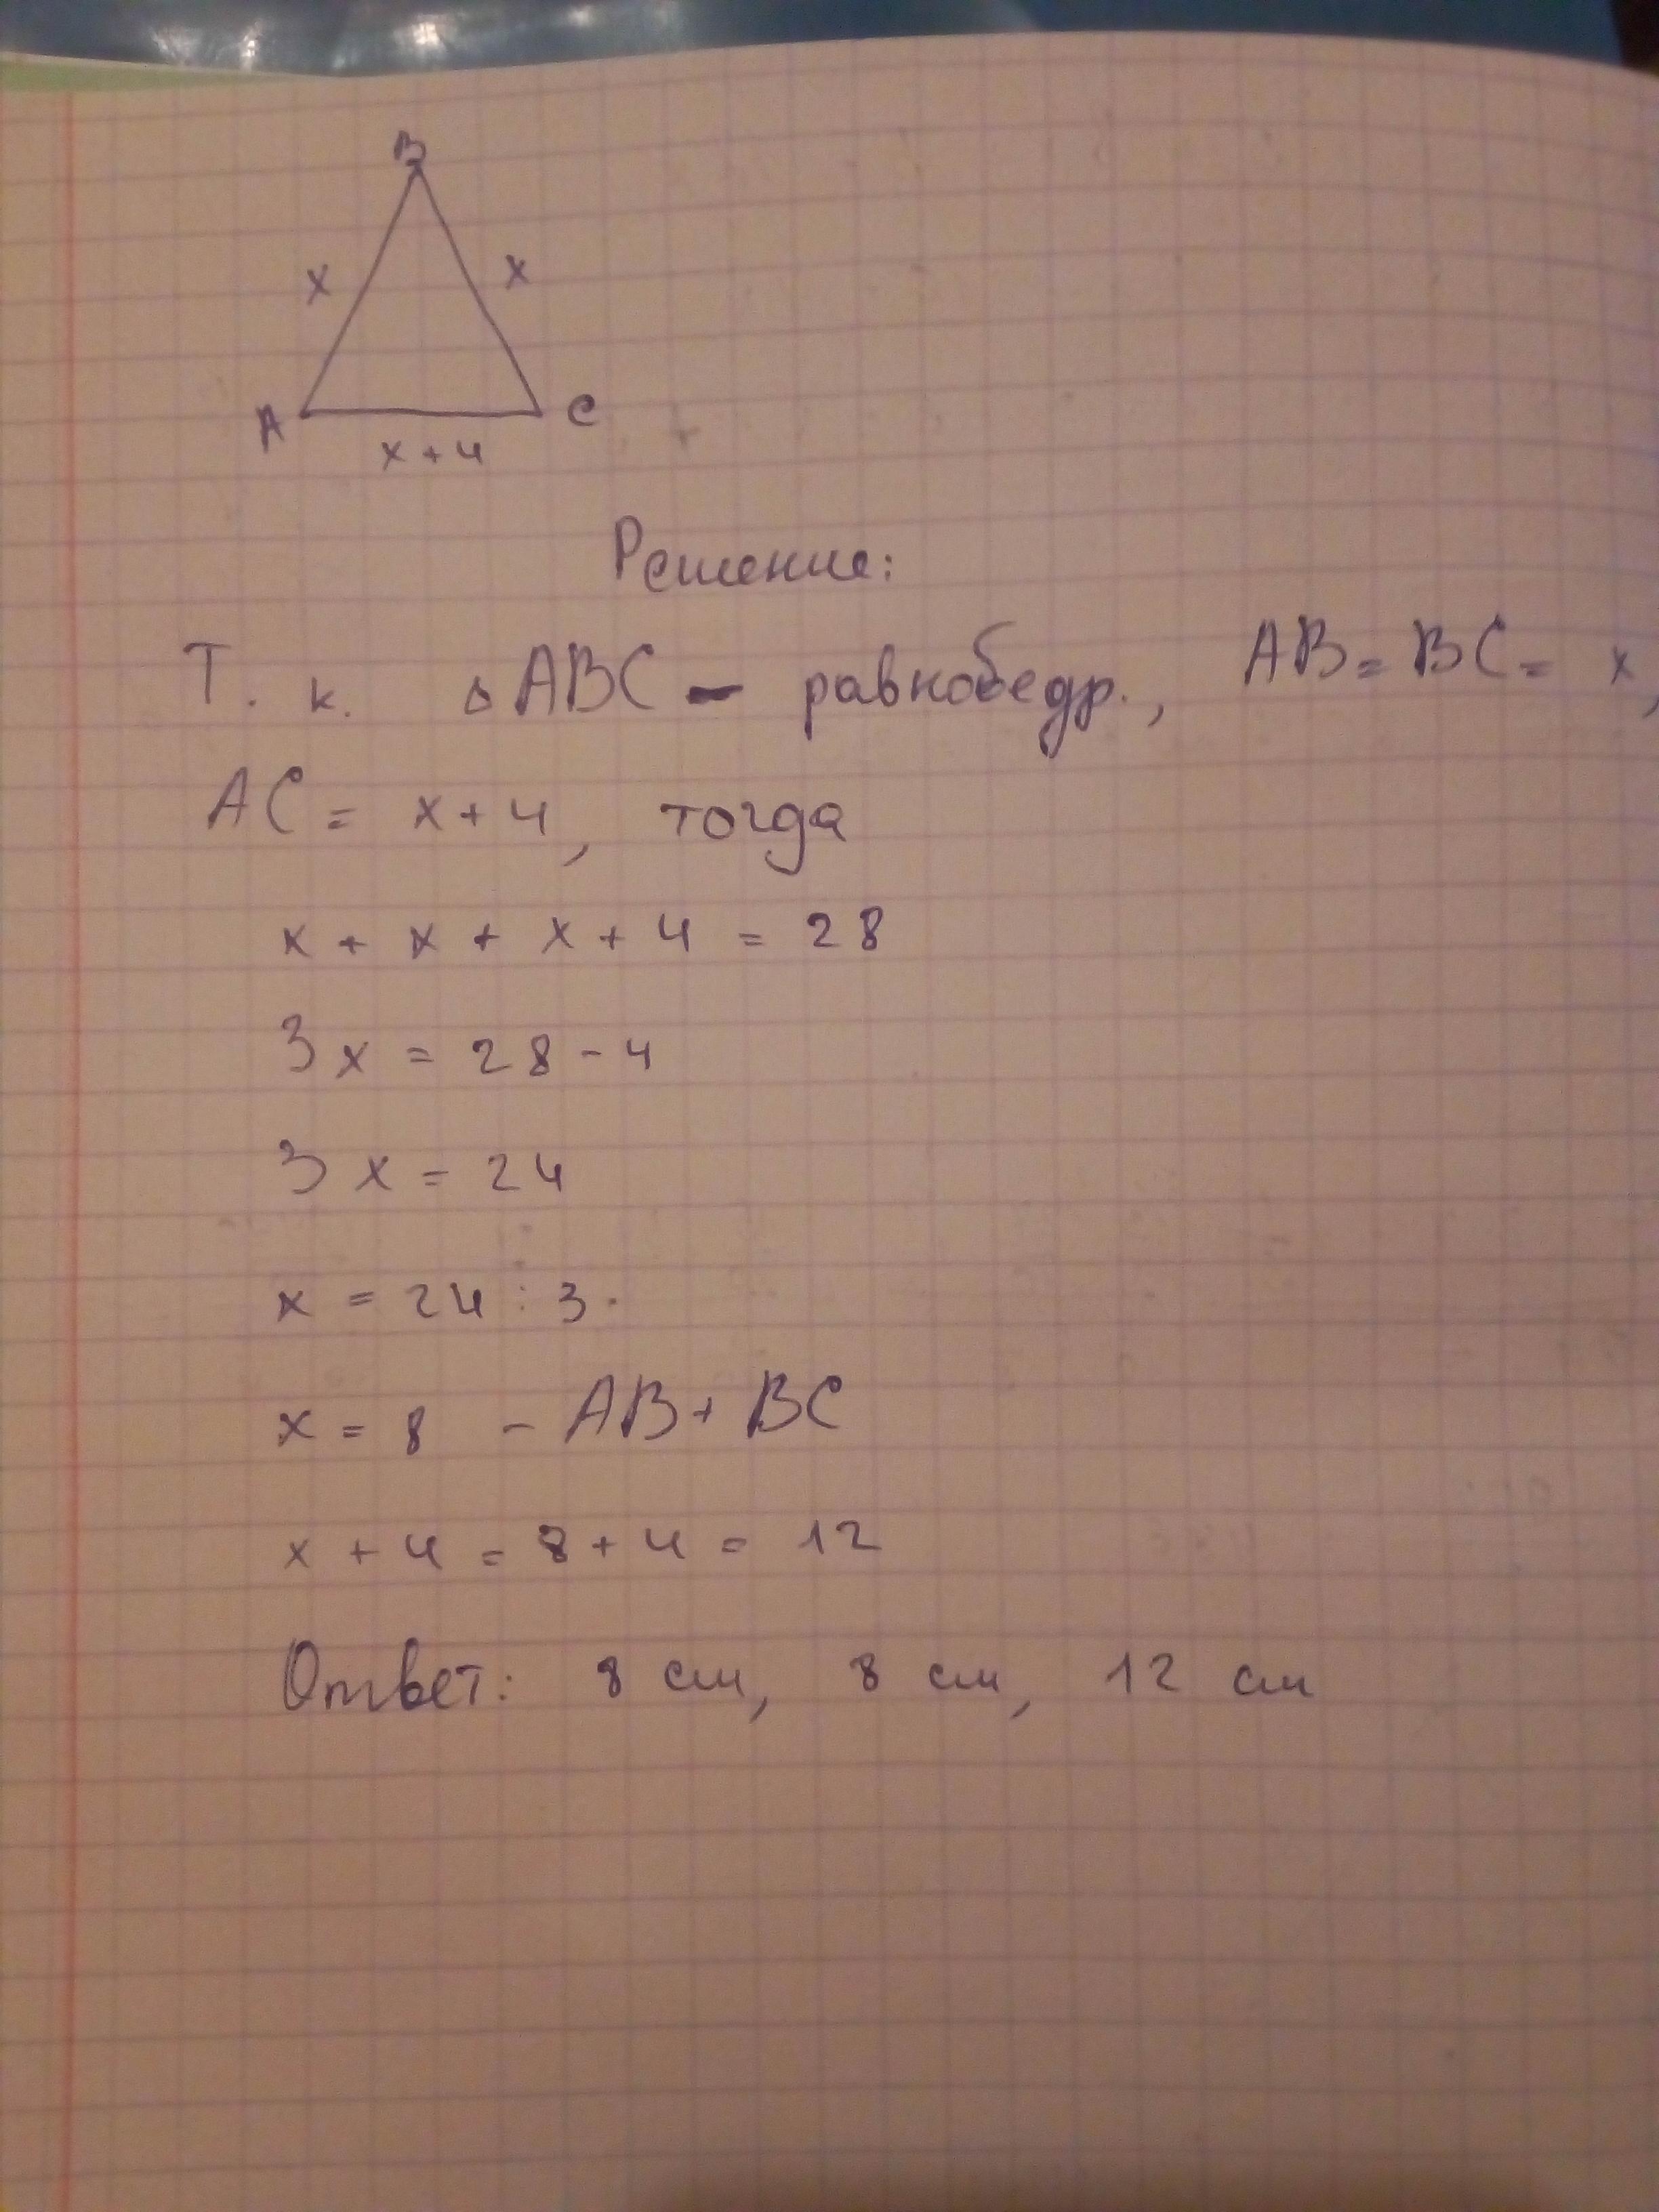 B
x x
A C
x + 4
Решение:
Т. к. ▵ ABC - равнобедр., AB = BC = x,
AC = x + 4, тогда
x + x + x + 4 = 28
3x = 28 - 4
3x = 24
x = 24 : 3.
x = 8 - AB + BC
x + 4 = 8 + 4 = 12
Ответ: 8 см, 8 см, 12 см